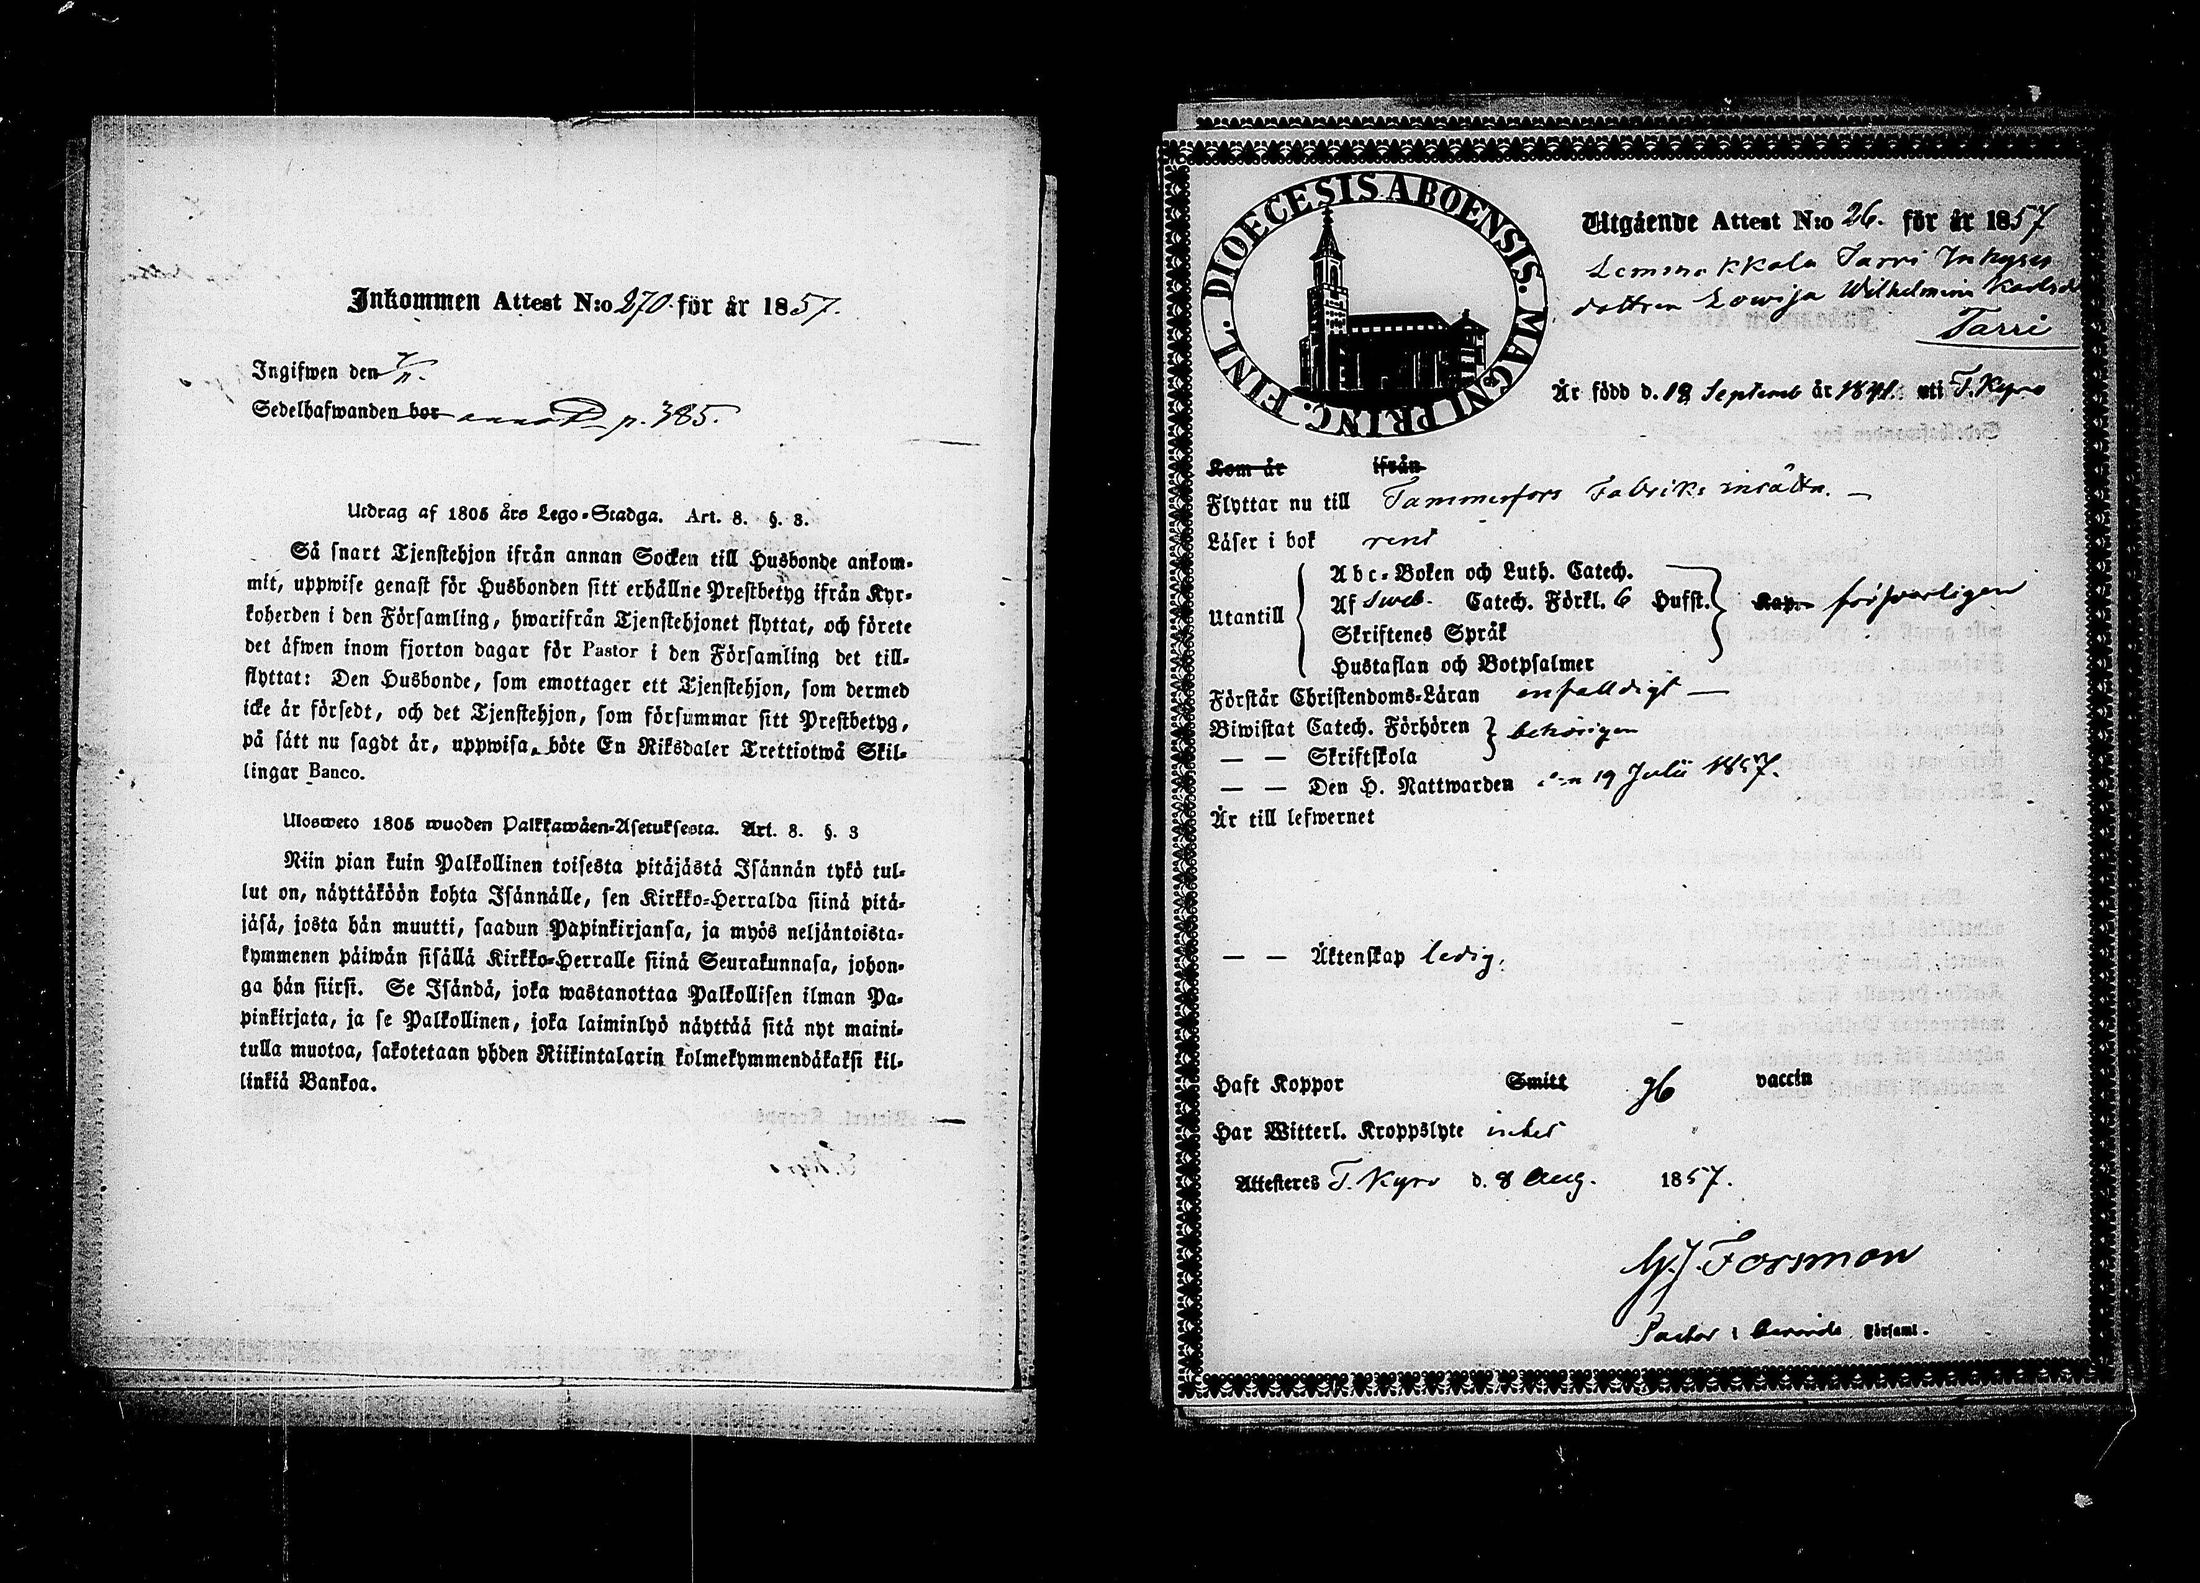 Inkommen Attest N:o 270. för år 1857.
Ingifwen den 7/11.
Sedelhafwanden bor p. 385.
Utdrag af 1805 års Lego-Stadga. Art. 8. §. 3.
Så snart Tjenstehjon ifrån annan Socken till Husbonde ankom-
mit, uppwise genast för Husbonden sitt erhållne Prestbetyg ifrån Kyr-
koherden i den Församling, hwarifrån Tjenstehjonet flyttat, och förete
det äfwen inom fjorton dagar för Pastor i den Församling det till-
flyttat: Den Husbonde, som emottager ett Tjenstehjon, som dermed
icke är försedt, och det Tjenstehjon, som försummar sitt Prestbetyg,
på sätt nu sagdt är, uppwisa, böte En Riksdaler Trettiotwå Skil-
lingar Banco.
Ulosweto 1805 wuoden Palkkawäen-Asetuksesta. Art. 8. §. 3
Niin pian kuin Palkollinen toisesta pitäjästä Isännän tykö tul-
lut on, näyttäköön kohta Isännälle, sen Kirkko-Herralda siinä pitä-
jäsä, josta hän muutti, saadun Papinkirjansa, ja myös neljäntoista-
kymmenen päiwän sisällä Kirkko-Herralle siinä Seurakunnasa, johon-
ga hän siirsi. Se Isändä, joka wastanottaa Palkollisen ilman Pa-
pinkirjata, ja se Palkollinen, joka laiminlyö näyttää sitä nyt maini-
tulla muotoa, sakotetaan yhden Riikintalarin kolmekymmendäkaksi kil-
linkiä Bankoa.
DIOECESIS ABOENSIS. MAGNI PRINC. FINL.
Utgående Attest N:o 26. för år 1857
Lemmakkala Tarri Inhyses
dottren Lowisa Wilhelmina Karlsd
Tarri
Är född d. 18 Septemb år 1841. uti T. Kyro
Kom år ifrån
Flyttar nu till Tammerfors Fabriks inrättn. —
Läser i bok rent
Utantill
Abc-Boken och Luth. Catech.
Af Sweb. Catech. Förkl. 6 Hufst.
Skriftenes Språk
Hustaflan och Botpsalmer
Kap. försvarligen
Förstår Christendoms-Läran enfalldigt —
Biwistat Catech. Förhören behörigen
— — Skriftskola
— — Den H. Nattwarden den 19 Julii 1857.
Är till lefwernet
— — Äktenskap ledig.
Haft Koppor Smitt vaccin
Har Witterl. Kroppslyte intet
Attesteres T. Kyro d. 8 Aug. 1857.
Forsman
Pastor i berörde Församl.